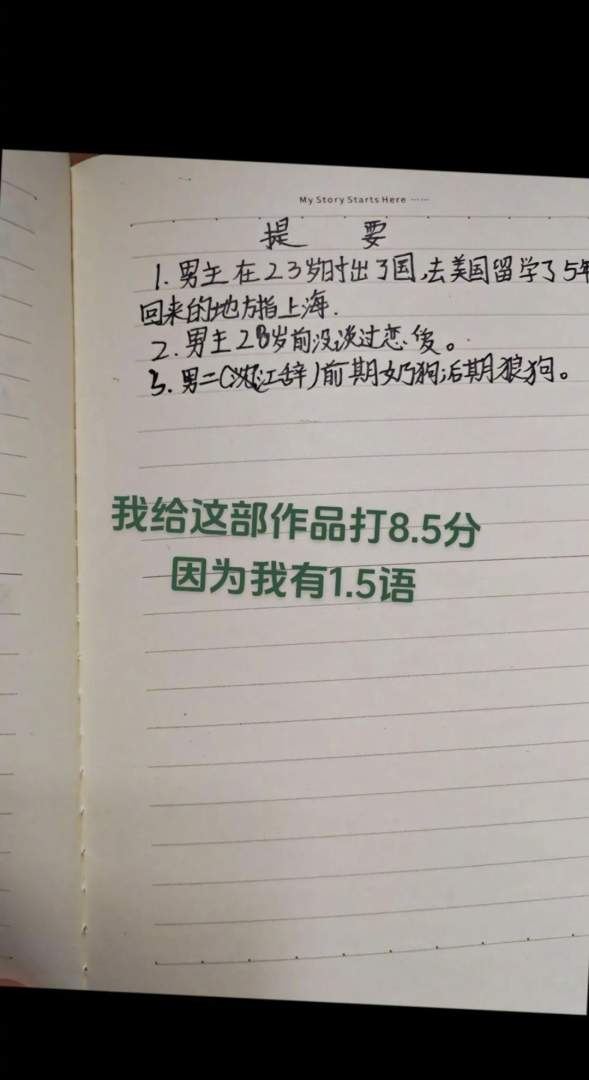 My Story Starts Here ······
提 要
1. 男主在23岁时出了国,去美国留学了5年
回来的地方指上海.
2. 男主28岁前没谈过恋爱。
3. 男二(沈江辞)前期奶狗,后期狼狗。
我给这部作品打8.5分
因为我有1.5语